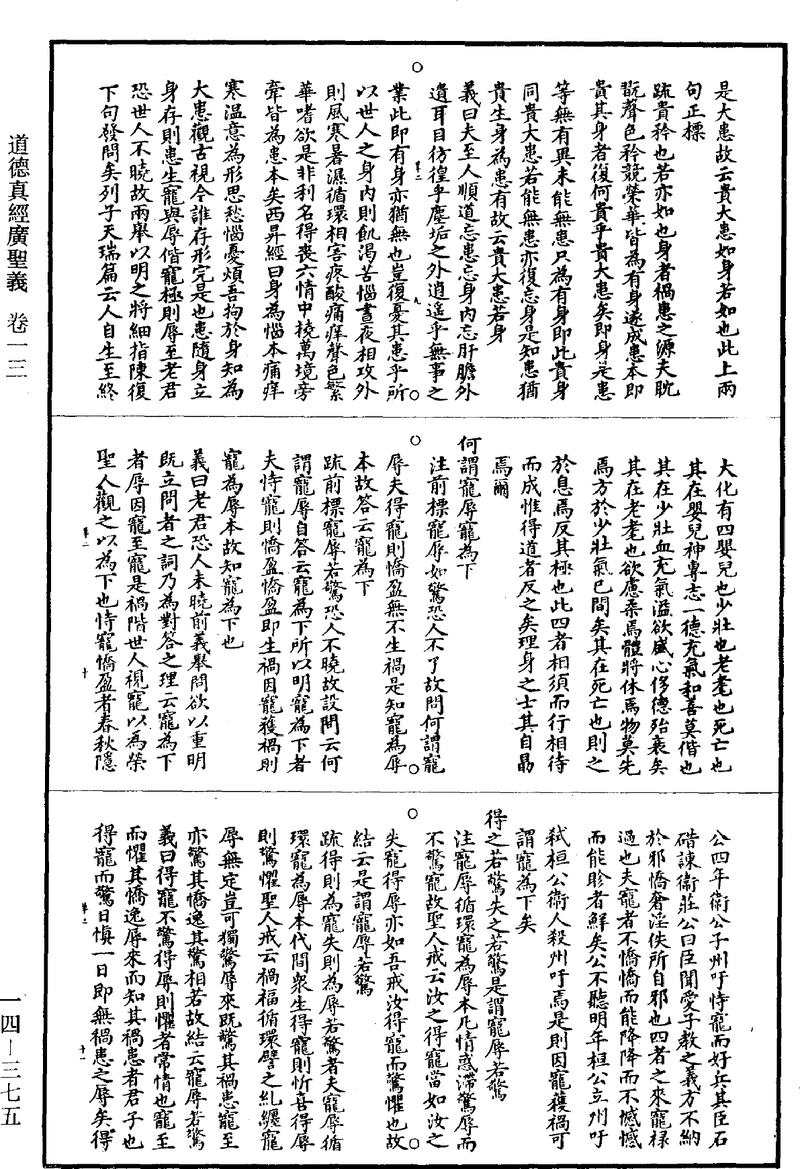 是大患故云貴大患如身若如也此上兩
句正標
疏貴矜也若亦如也身者禍患之源夫耽
翫聲色矜競榮華皆為有身遂成患本即
貴其身者復何貴乎貴大患矣即身是患
等無有異未能無患只為有身即此貴身
同貴大患若能無患亦復忘身是知患猶
貴生身為患有故云貴大患若身
義曰夫至人順道忘患忘身內忘肝膽外
遺耳目彷徨乎塵垢之外逍遙乎無事之
業此即有身亦猶無也豈復憂其患乎所
以世人之身內則飢渴苦惱晝夜相攻外
則風寒暑濕循環相害疼酸痛痒聲色繁
華嗜欲是非利名得喪六情中撓萬境旁
牽皆為患本矣西昇經曰身為惱本痛痒
寒溫意為形思愁惱憂煩吾拘於身知為
大患觀古視今誰存形完是也患隨身立
身存則患生寵與辱偕寵極則辱至老君
恐世人不曉故兩舉以明之將細指陳復
下句發問矣列子天瑞篇云人自生至終
大化有四嬰兒也少壯也老耄也死亡也
其在嬰兒神專志一德充氣和善莫偕也
其在少壯血充氣溢欲盛心侈德殆衰矣
其在老耄也欲慮柔焉體將休焉物莫先
焉方於少壯氣已間矣其在死亡也則之
於息焉反其極也此四者相須而行相待
而成惟得道者反之矣理身之士其自勗
焉爾
何謂寵辱寵為下
注前標寵辱如驚恐人不了故問何謂寵
辱夫得寵則憍盈無不生禍是知寵為辱
本故答云寵為下
疏前標寵辱若驚恐人不曉故設問云何
謂寵辱自答云寵為下所以明寵為下者
夫恃寵則憍盈憍盈即生禍因寵獲禍則
寵為辱本故知寵為下也
義曰老君恐人未曉前義舉問欲以重明
既立問者之詞乃為對答之理云寵為下
者辱因寵至寵是禍階世人視寵以為榮
聖人觀之以為下也恃寵憍盈者春秋隱
公四年衛公子州吁恃寵而好兵其臣石
碏諫衛莊公曰臣聞愛子教之義方不納
於邪憍奢淫佚所自邪也四者之來寵祿
過也夫寵者不憍憍而能降降而不憾憾
而能眕者鮮矣公不聽明年桓公立州吁
弒桓公衛人殺州吁焉是則因寵獲禍可
謂寵為下矣
得之若驚失之若驚是謂寵辱若驚
注寵辱循環寵為辱本凡情惑滯驚辱而
不驚寵故聖人戒云汝之得寵當如汝之
失寵得辱亦如吾戒汝得寵而驚懼也故
結云是謂寵辱若驚
疏得則為寵失則為辱若驚者夫寵辱循
環寵為辱本代間衆生得寵則忻喜得辱
則驚懼聖人戒云禍福循環譬之糺纏寵
辱無定豈可獨驚辱來既驚其禍患寵至
亦驚其憍逸其驚相若故結云寵辱若驚
義曰得寵不驚得辱則懼者常情也寵至
而懼其憍逸辱來而知其禍患者君子也
得寵而驚日慎一日即無禍患之辱矣得
道德真經廣聖義 卷一三
一四—三七五